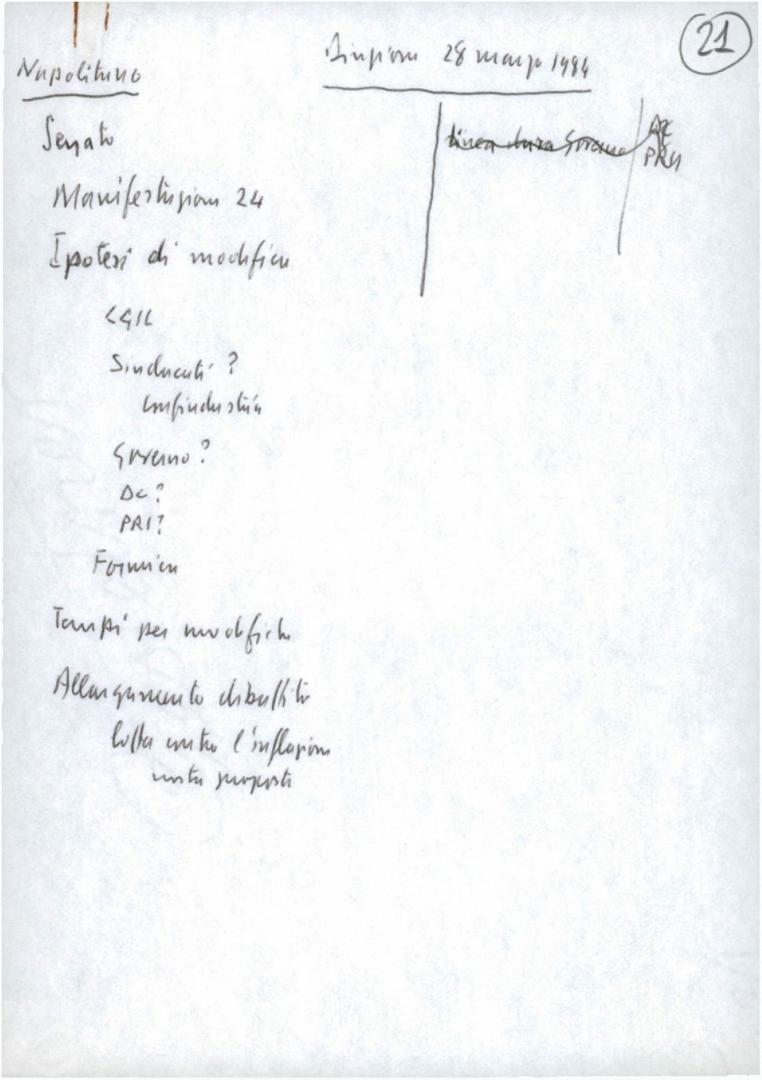 21
Napolitano
Direzione 28 marzo 1984
Senato
linea dura Governo
DC
PRI
Manifestazione 24
Ipotesi di modifica
CGIL
Sindacati ?
Confindustria
Governo ?
DC ?
PRI ?
Formica
Tempi per modifiche
Allargamento dibattito
lotta contro l'inflazione
nostra proposta